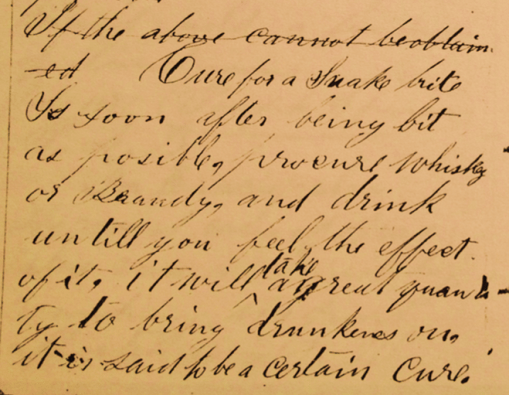 If the above cannot be obtain
-ed Cure for a Snake bite
As soon after being bit
as posible, procure Whisky
or Brandy, and drink
untill you feel the effect
of it, it will take a great quanti-
ty to bring drunkenes on,
it is said to be a certain cure.